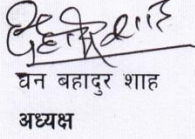 घन बहादुर शाह
अध्यक्ष